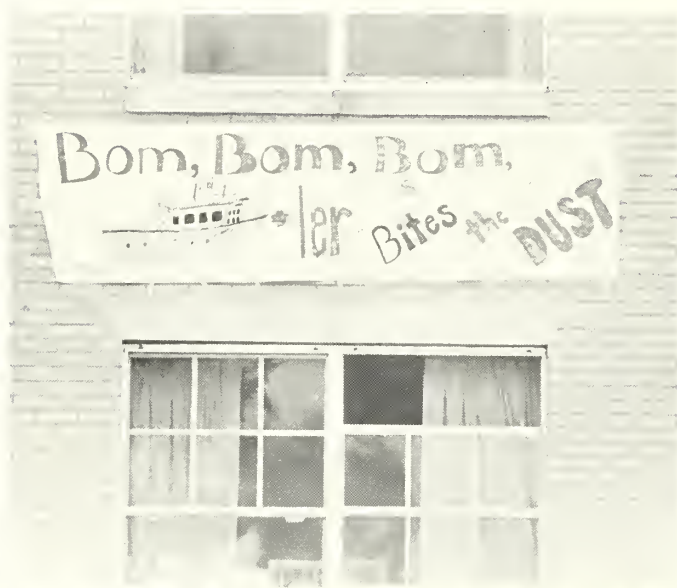 Bom, Bom, Bom,
+ler Bites the DUST